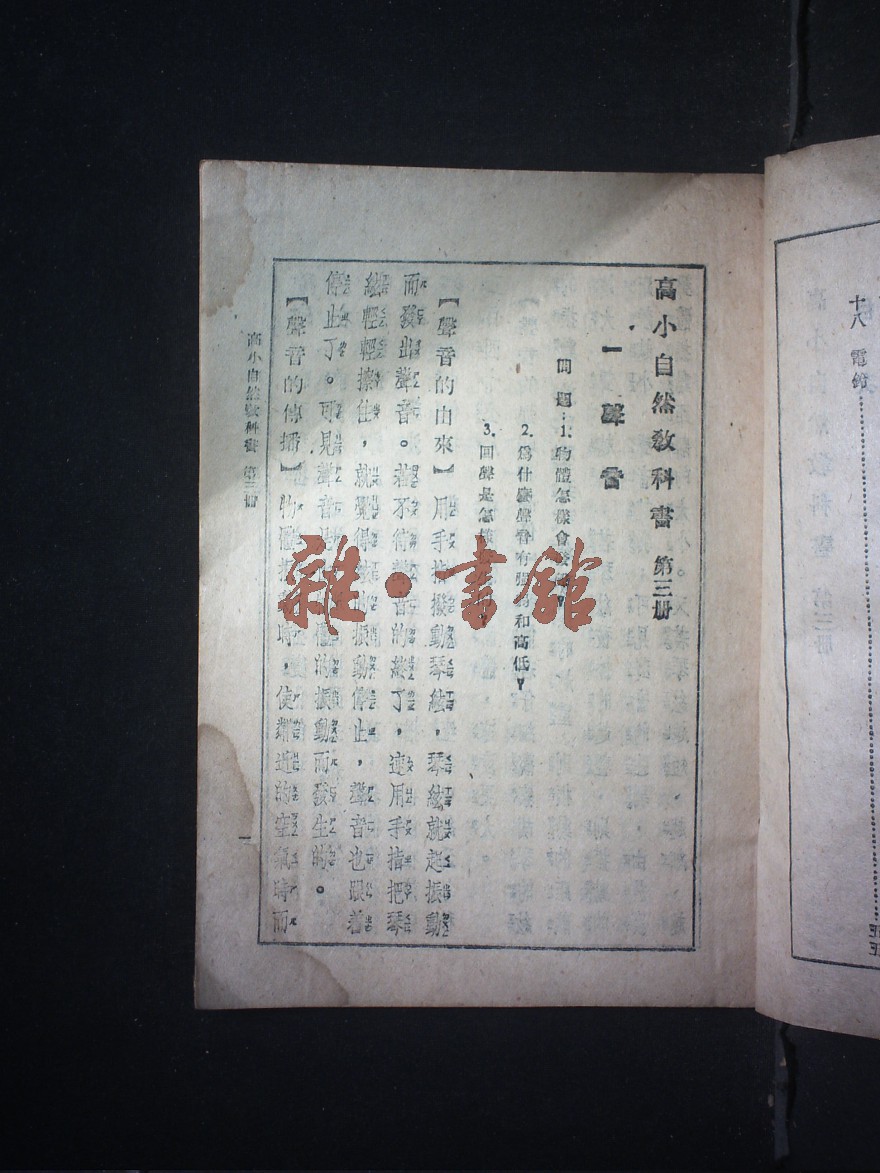 高小自然教科書 第三册
一 聲音
問題：1. 物體怎樣會發
2. 爲什麽聲音有强弱和高低？
3. 回聲是怎樣
【聲音的由來】 用手指撥動琴絃，琴絃就起振動
而發出聲音。若不待聲音的終了，速用手指把琴
絃輕輕擦住，就覺得絃的振動停止，聲音也跟着
停止了。可見聲音是 的振動而發生的。
【聲音的傳播】 物體振 時，使鄰近的空氣時而
高小自然敎科書 第三册
一
十八 電鈴
雜·書館